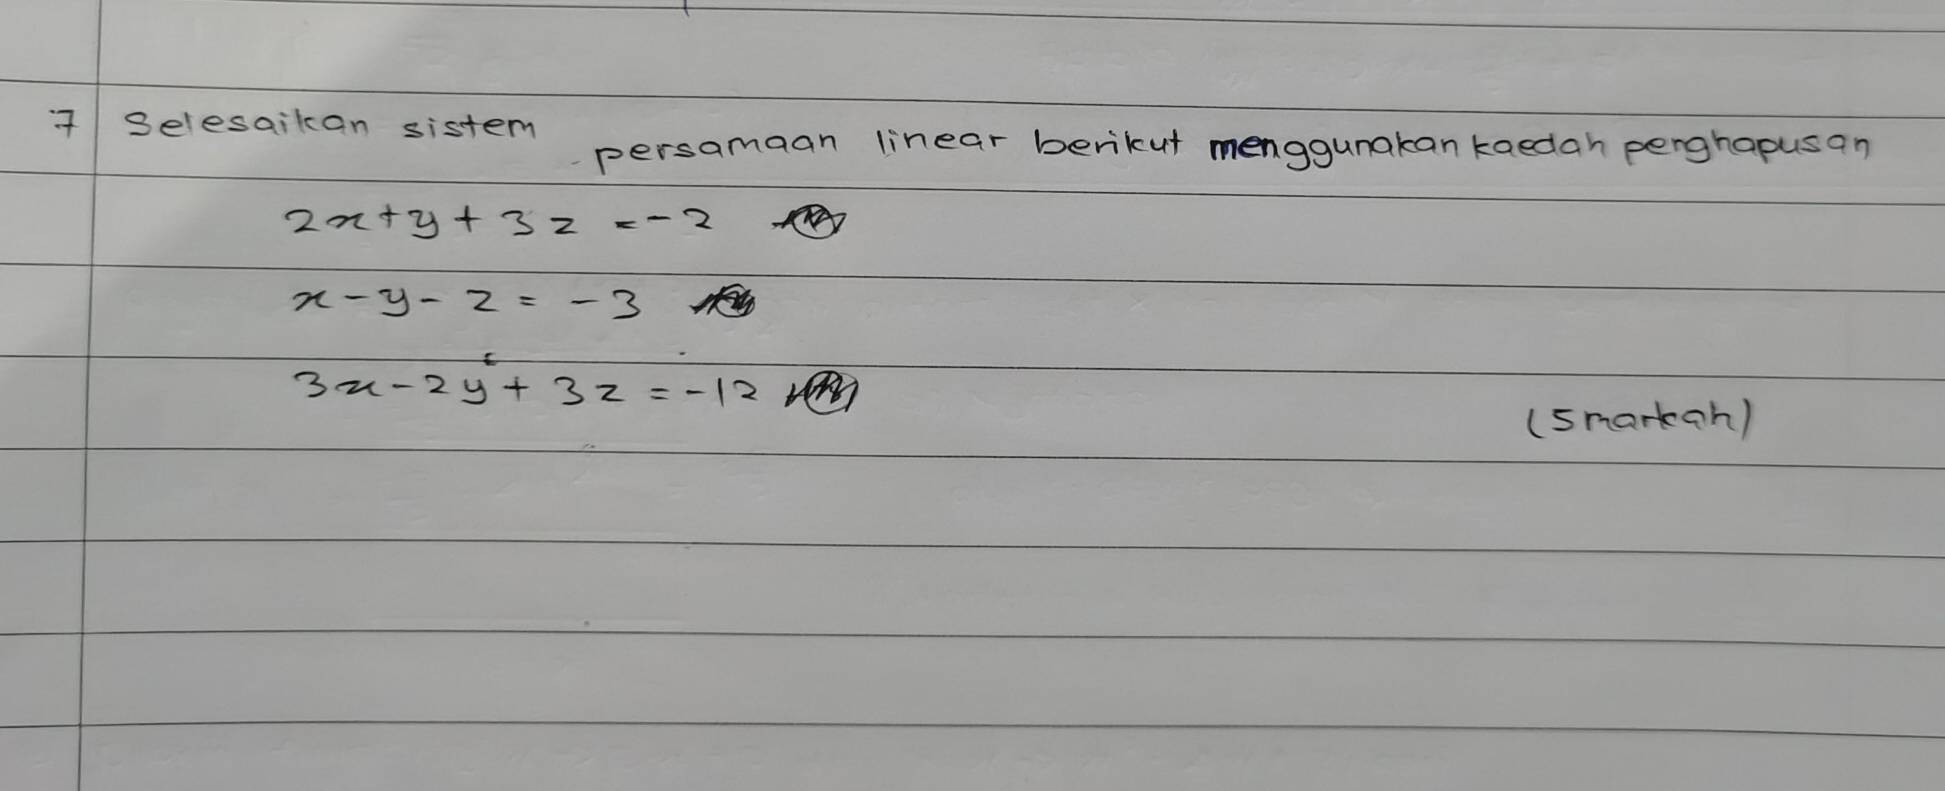 7 Selesaikan sistem persamaan linear berikut menggunakan kaedah penghapusan
2x+y+3z=-2
x-y-z=-3
3x-2y+3z=-12
(5 markah)